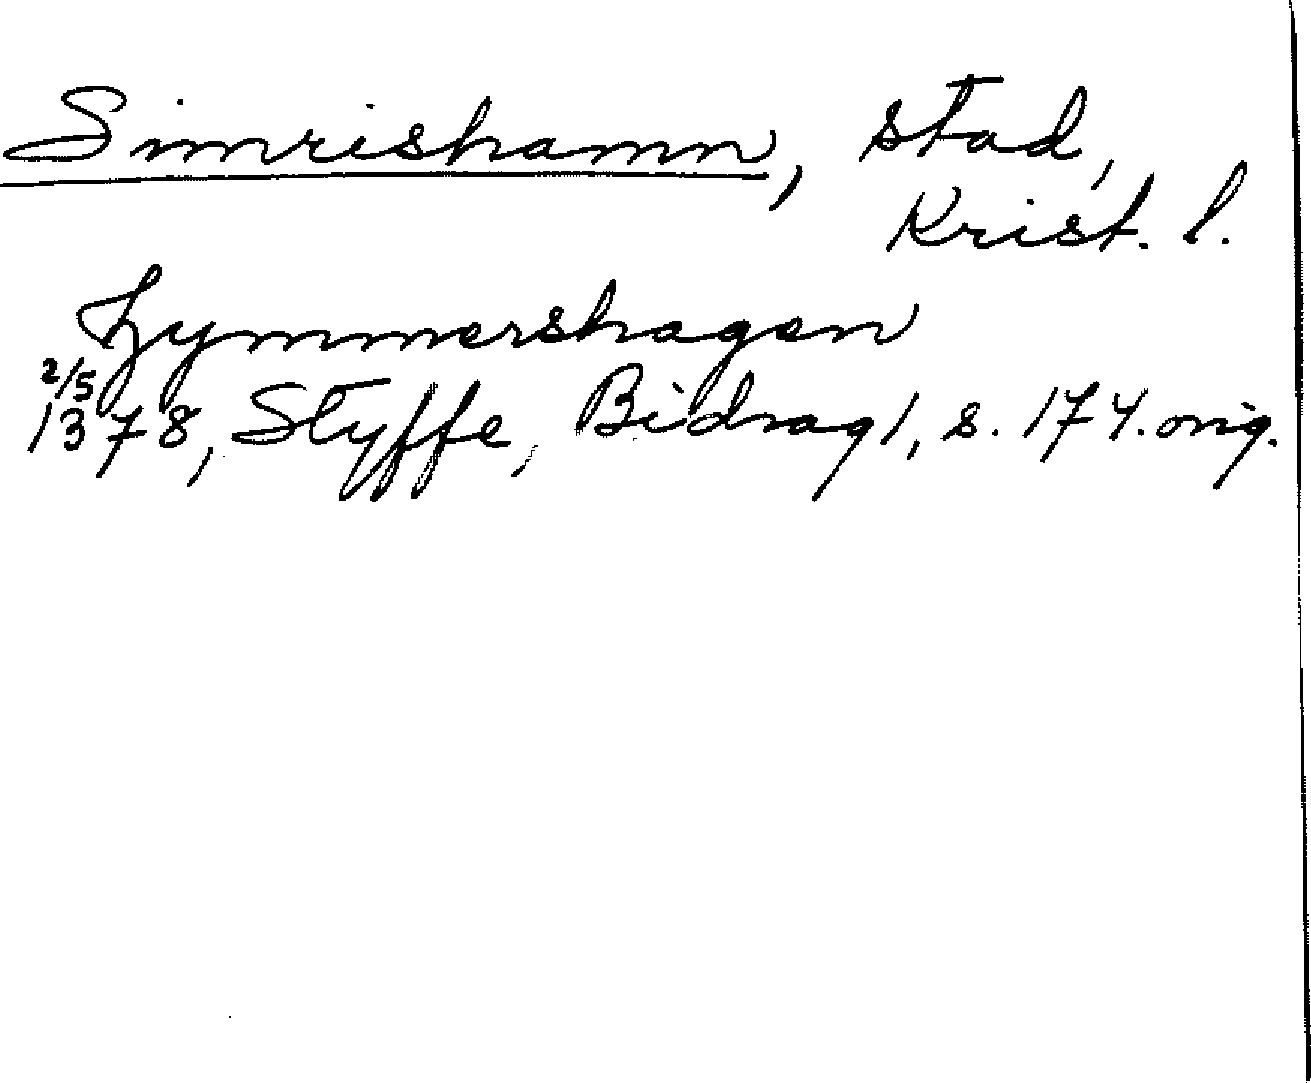 Simrishamn, stad,
Krist. l.
Zymmershagen
2/5
1378, Styffe, Bidrag 1, s. 174. orig.